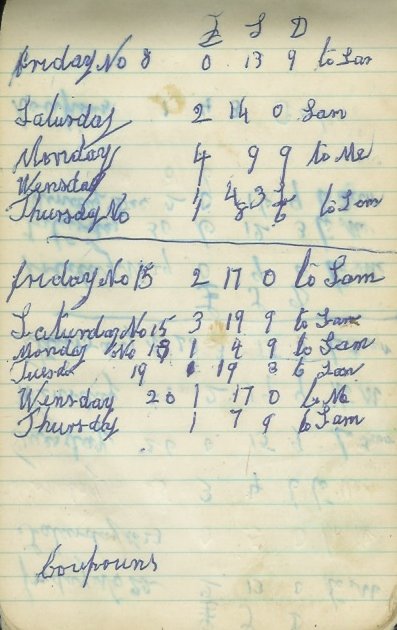 £ S D
Friday No 8 0 13 9 to Sam
Saturday 2 14 0 Sam
Monday 4 9 9 to Me
Wensday
Thursday No 1 to Sam
Friday No 15 2 17 0 to Sam
Saturday No 15 3 19 9 to Sam
Monday No 1 4 9 to Sam
Tuesda 19 1 19 3 to Sam
Wensday 20 1 17 0 to Me
Thursday 1 7 9 to Sam
Coupouns